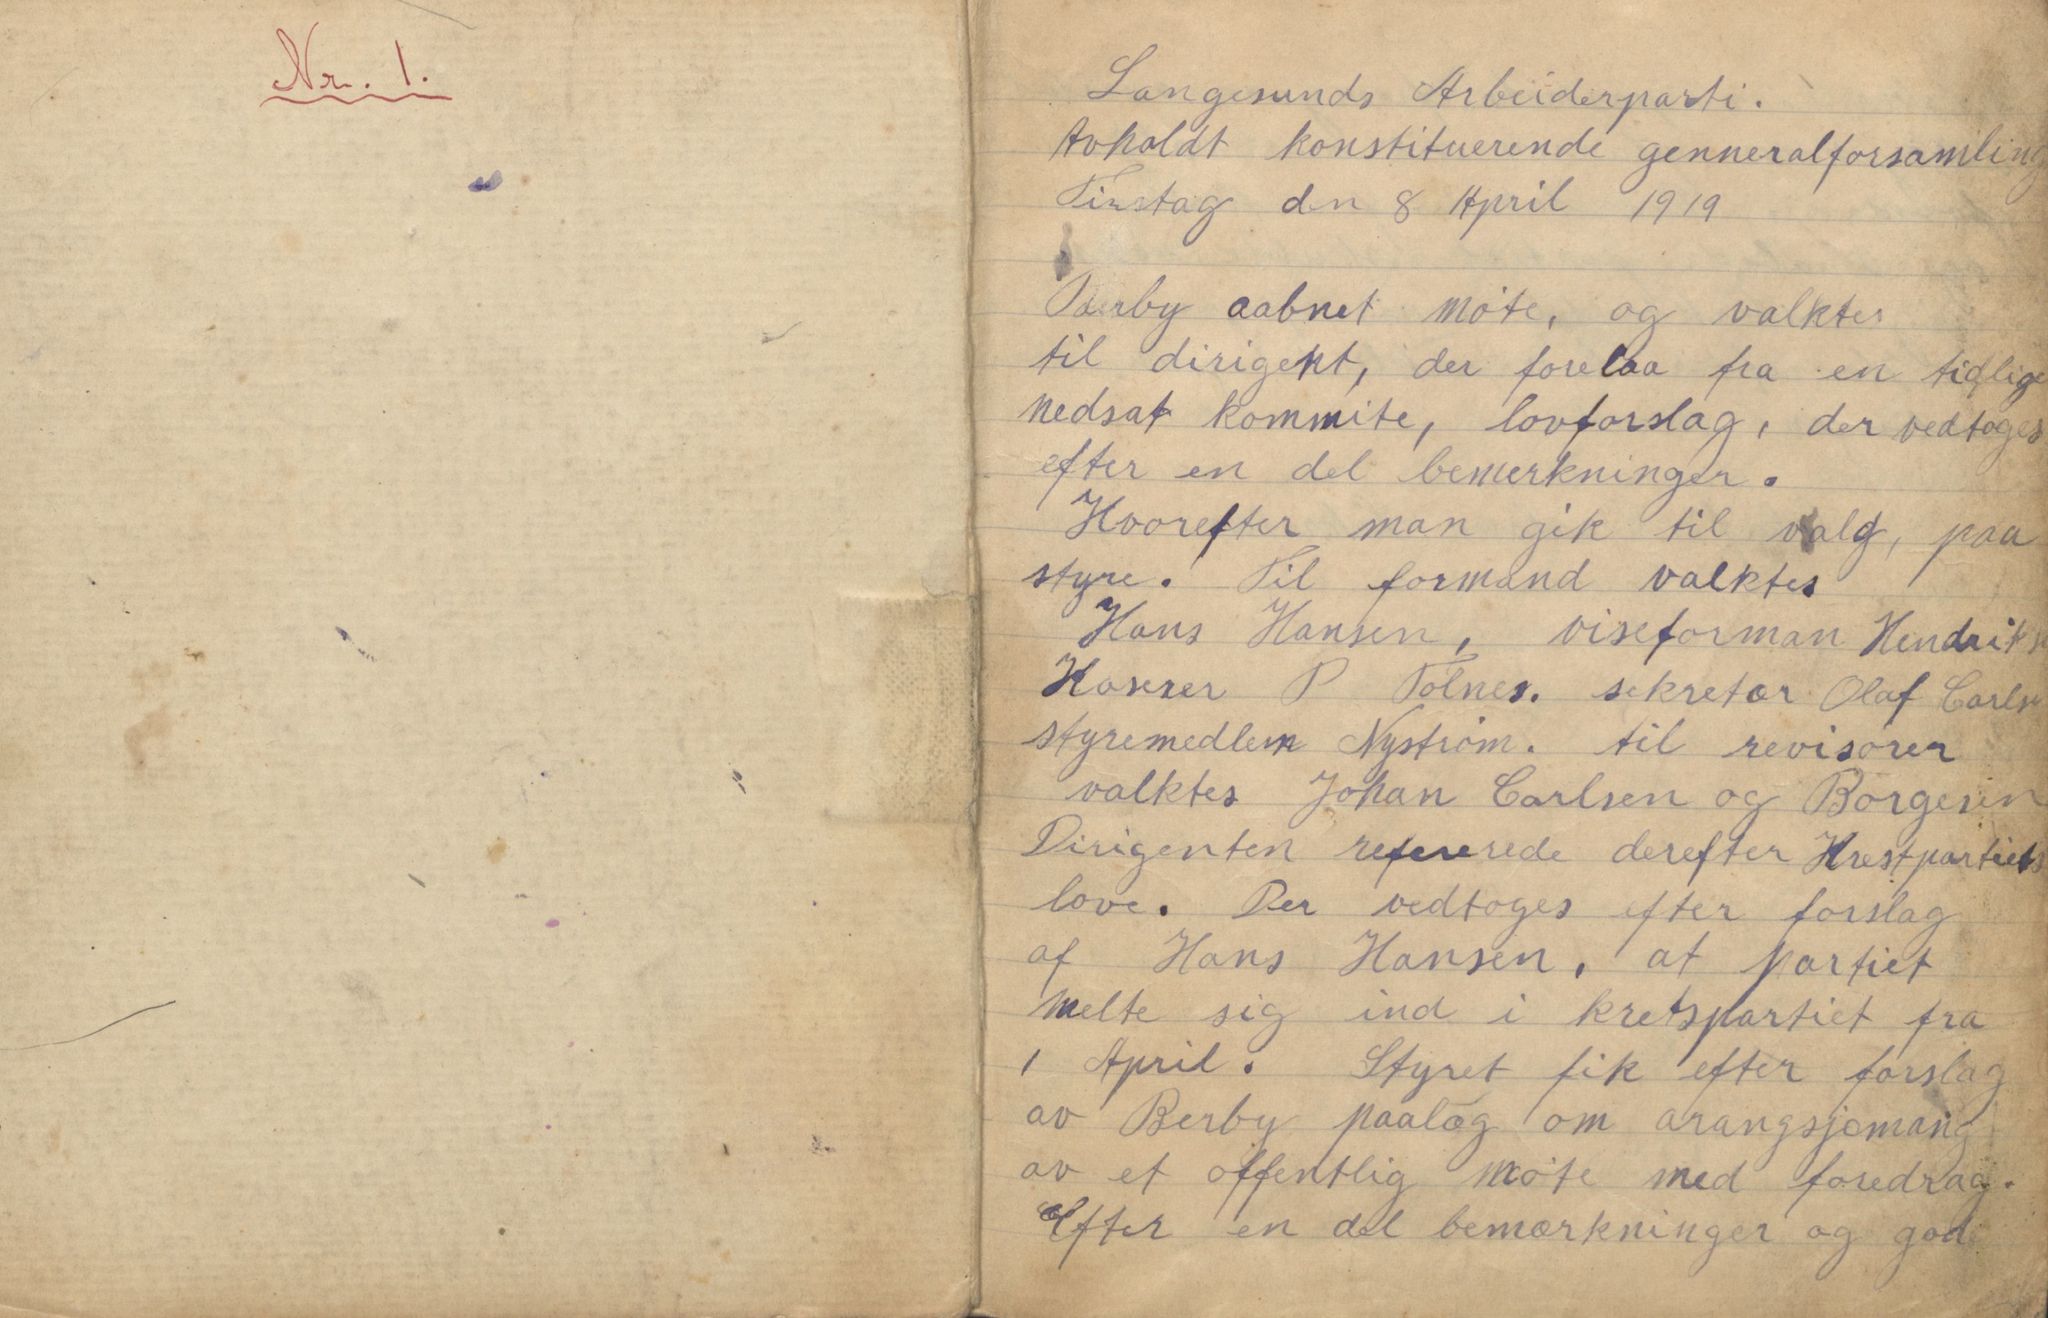 Nr. 1.
Langesunds Arbeiderparti.
Avholdt konstituerende genneralforsamling
Tirstag den 8 April 1919
Berby aabnet møte, og valktes
til dirigent, der forelaa fra en tidlige
nedsat kommite, lovforslag, der vedtoges
efter en del bemerkninger.
Hvorefter man gik til valg, paa
styre. Til formand valktes
Hans Hansen, viseforman Hendriks
Kaserer P Tolnes. sekretær Olaf Carls
styremedlem Nystrøm. til revisorer
valktes Johan Carlsen og Borgesen
Dirigenten refererede derefter Krestpartiets
love. Der vedtoges efter forslag
af Hans Hansen, at partiet
melte sig ind i kretspartiet fra
1 April. Styret fik efter forslag
av Berby paalæg om arangsjemang
av et offentlig møte med foredrag.
Efter en del bemærkninger og god